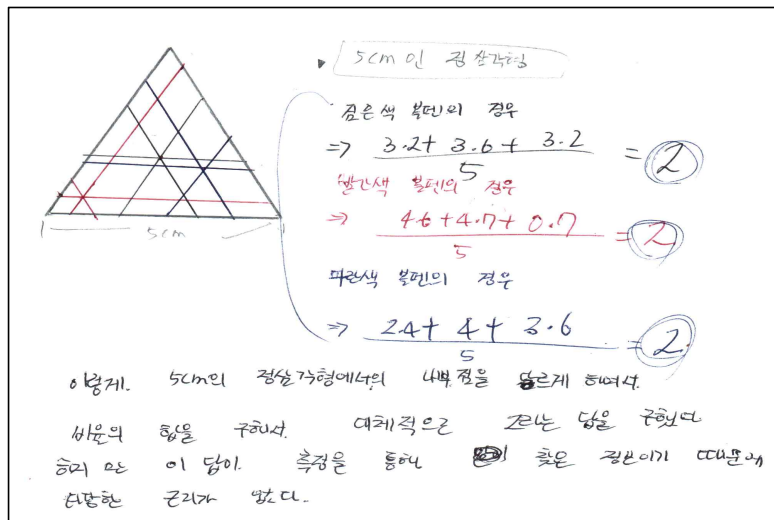 5cm인 정삼각형
검은색 볼펜의 경우
⇒ 3.2+ 3.6 + 3.2 / 5 = 2
빨간색 볼펜의 경우
⇒ 4.6 + 4.7 + 0.7 / 5 = 2
5cm
파란색 볼펜의 경우
⇒ 2.4+ 4 + 3.6 / 5 = 2
이렇게. 5cm의 정삼각형에서의 내부점을 다르게 하여서.
비율의 합을 구해서. 대체적으로 2라는 답을 구했다
하지만 이 답이. 측정을 통해 찾은 정보이기 때문에
타당한 근거가 없다.